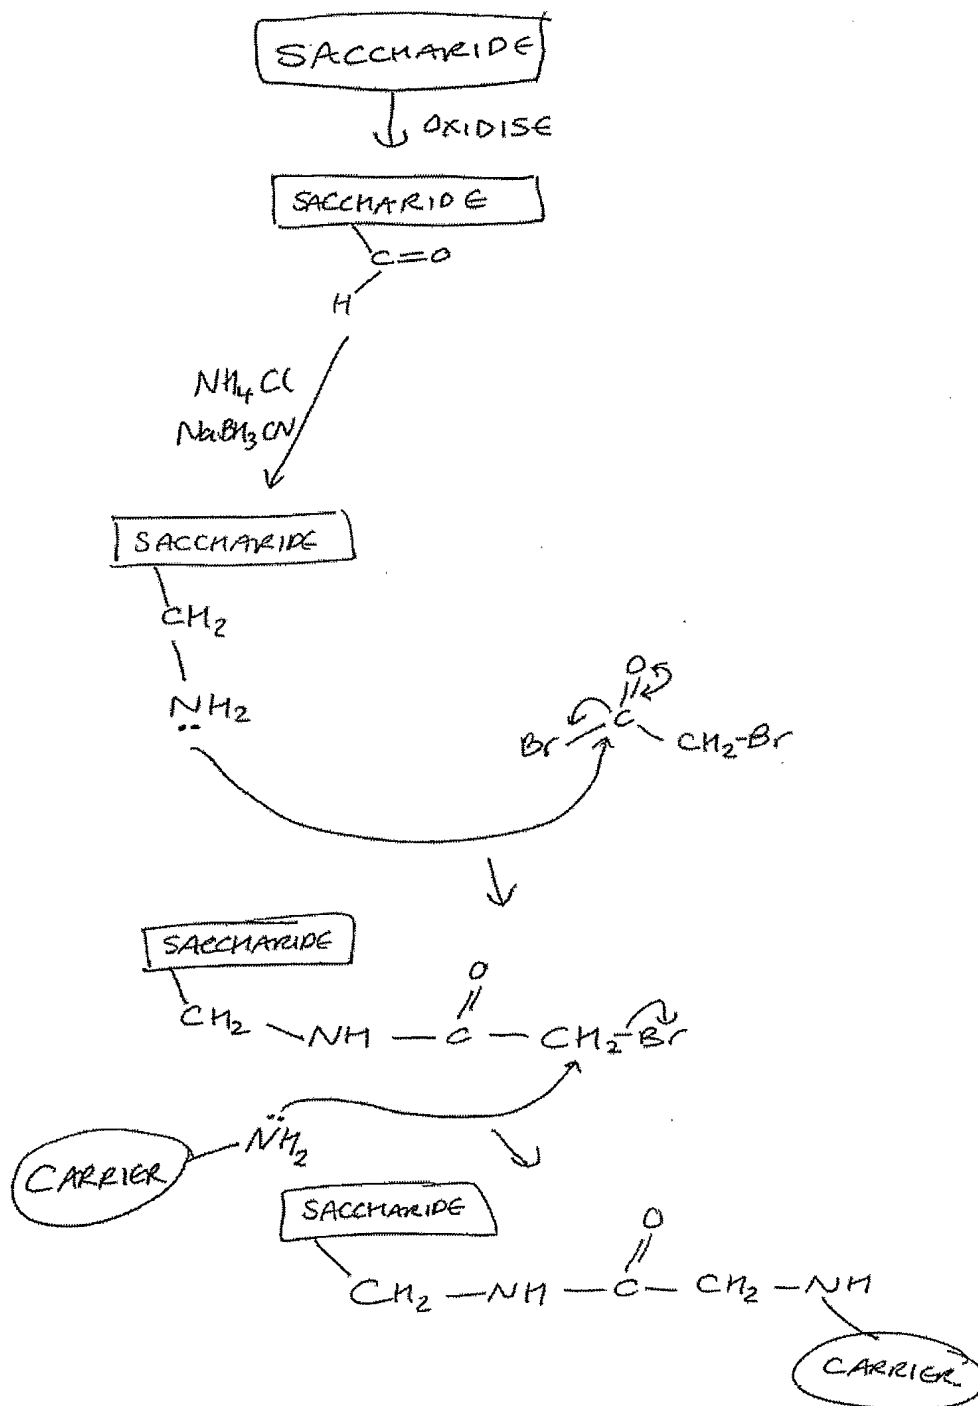 SACCHARIDE
OXIDISE
SACCHARIDE
C=O
H
NH4Cl
NaBH3CN
SACCHARIDE
CH2
NH2
O
Br C CH2-Br
SACCHARIDE
O
CH2 - NH - C - CH2-Br
NH2
CARRIER
SACCHARIDE
O
CH2 - NH - C - CH2 - NH
CARRIER